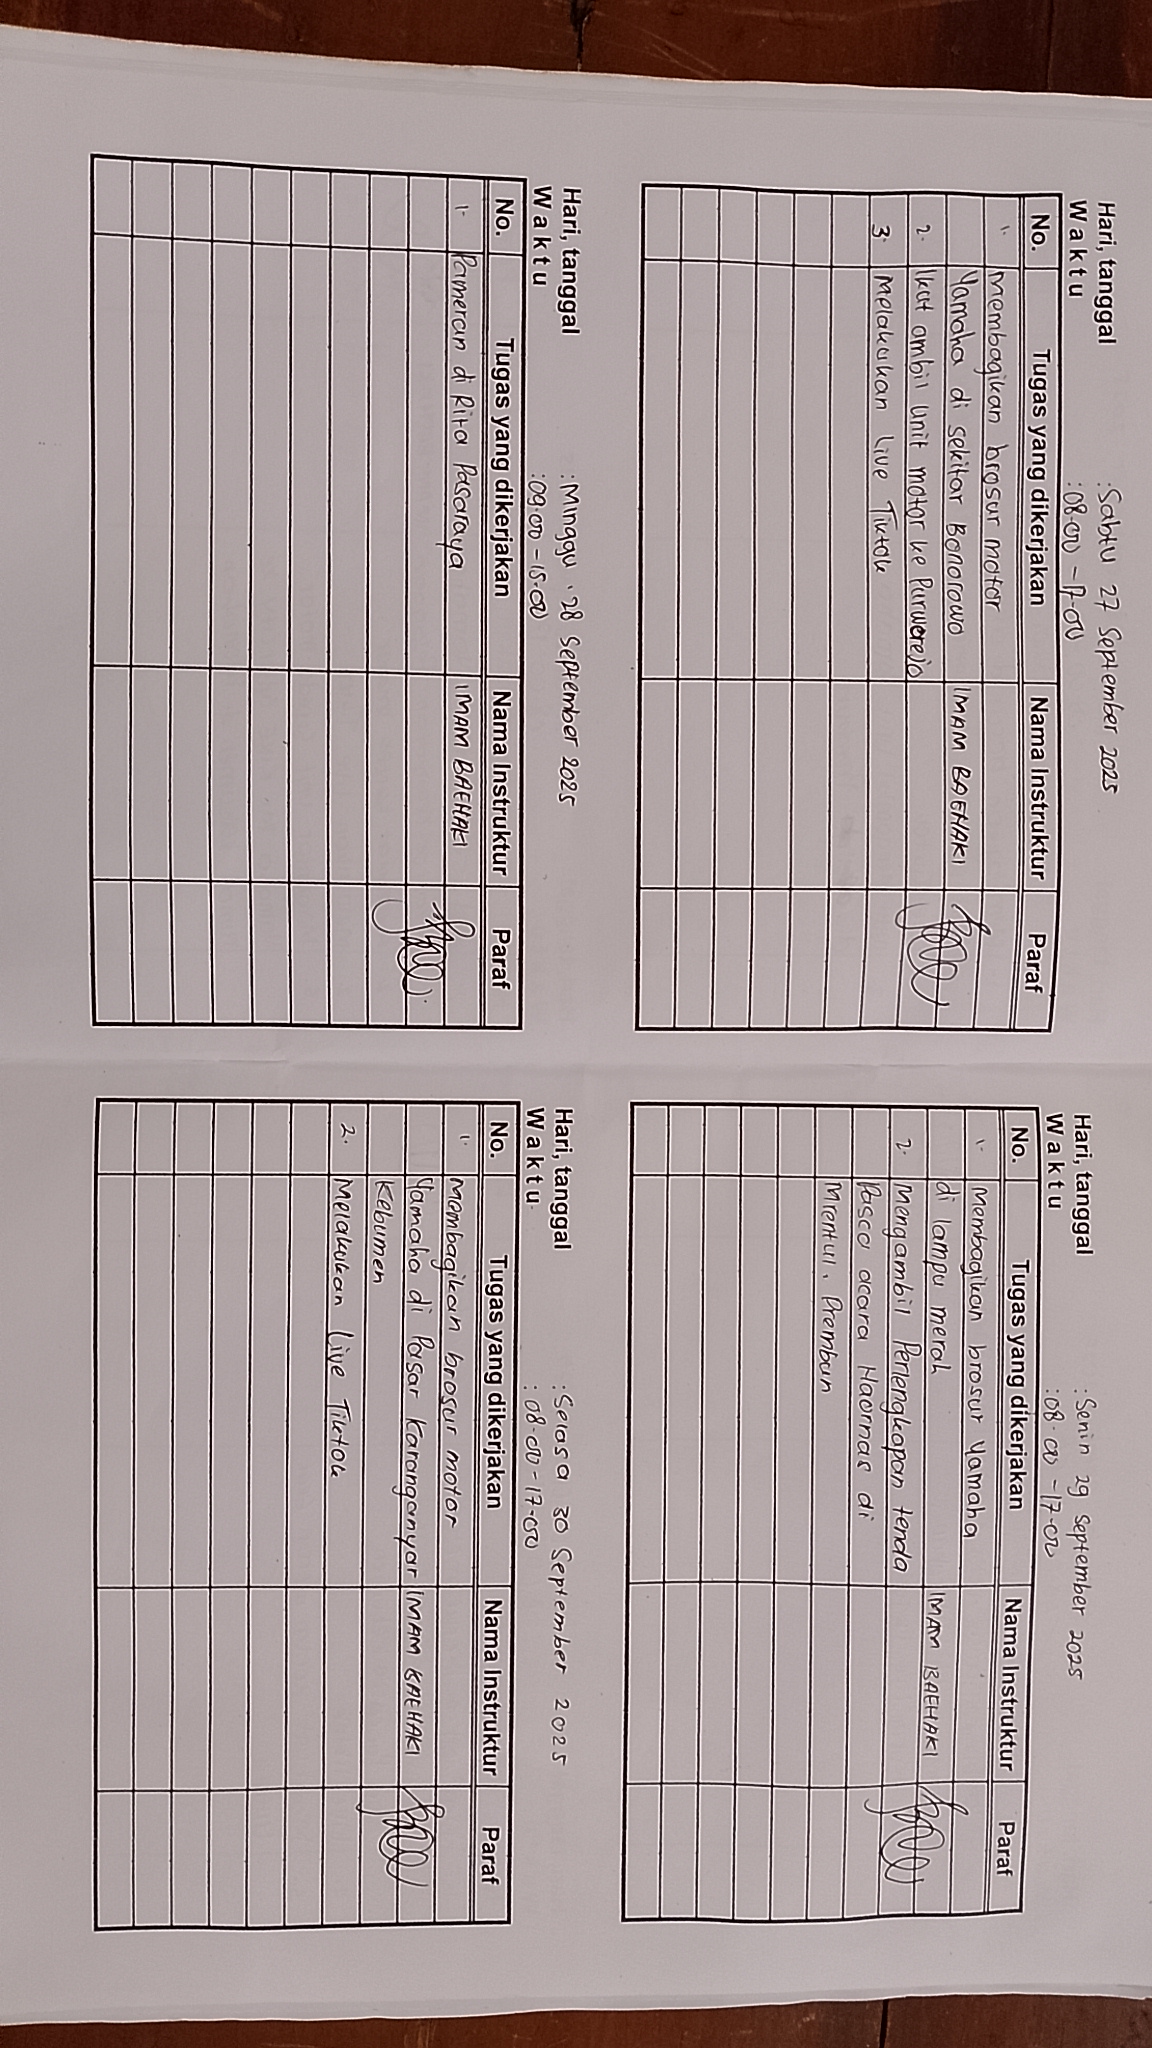 Hari, tanggal : Sabtu 27 September 2025
Waktu : 08.00 - 17.00
No. Tugas yang dikerjakan Nama Instruktur Paraf
1. Membagikan brosur motor
Yamaha di sekitar Bonorowo IMAM BAEHAKI
2. Ikut ambil unit motor ke Purworejo
3. Melakukan Live Tiktok
Hari, tanggal : Minggu, 28 September 2025
Waktu : 09.00 - 15.00
No. Tugas yang dikerjakan Nama Instruktur Paraf
1. Pameran di Rita Pasaraya IMAM BAEHAKI
Hari, tanggal : Senin 29 September 2025
Waktu : 08.00 - 17.00
No. Tugas yang dikerjakan Nama Instruktur Paraf
1. Membagikan brosur Yamaha
di lampu merah IMAM BAEHAKI
2. Mengambil Perlengkapan tenda
Pasca acara Haornas di
Mrentul, Prembun
Hari, tanggal : Selasa 30 September 2025
Waktu : 08.00 - 17.00
No. Tugas yang dikerjakan Nama Instruktur Paraf
1. Membagikan brosur motor
Yamaha di Pasar Karanganyar IMAM BAEHAKI
Kebumen
2. Melakukan Live Tiktok